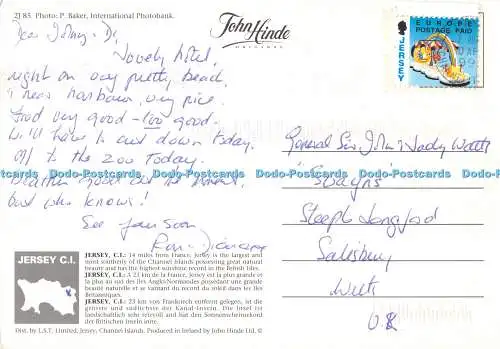 2J 85. Photo: P. Baker, International Photobank.
John Hinde
ORIGINALS
EUROPE
POSTAGE PAID
JERSEY
Dear Johnny & Di,
Lovely hotel,
right on very pretty beach
& near harbour, very nice.
Food very good - too good.
Will have to cut down today.
Off to the zoo today.
Weather good at the moment
but who knows!
See you soon
General Sir John & Lady Watts
"Swayns"
Steeple Langford
Salisbury
Wilts
U.K
Dodo-Postcards Dodo-Postcards Dodo-Postcards Dodo-Postcards Dodo-Postcards
JERSEY C.I.
JERSEY, C.I.: 14 miles from France, Jersey is the largest and
most southerly of the Channel Islands possessing great natural
beauty and has the highest sunshine record in the British Isles.
JERSEY, C.I.: À 23 km de la France, Jersey est la plus grande et
la plus au sud des Îles Anglo-Normandes possédant une grande
beauté naturelle et se vantant du record du soleil dans les Îles
Britanniques.
JERSEY, C.I.: 23 km von Frankreich entfernt gelegen, ist die
grösste und südlichste der Kanal-Inseln. Die Insel ist
landschaftlich sehr reizvoll und hat den Sonnenscheinrekord
der Britischen Inseln inne.
Dist. by L.S.T. Limited, Jersey, Channel Islands. Produced in Ireland by John Hinde Ltd. ©